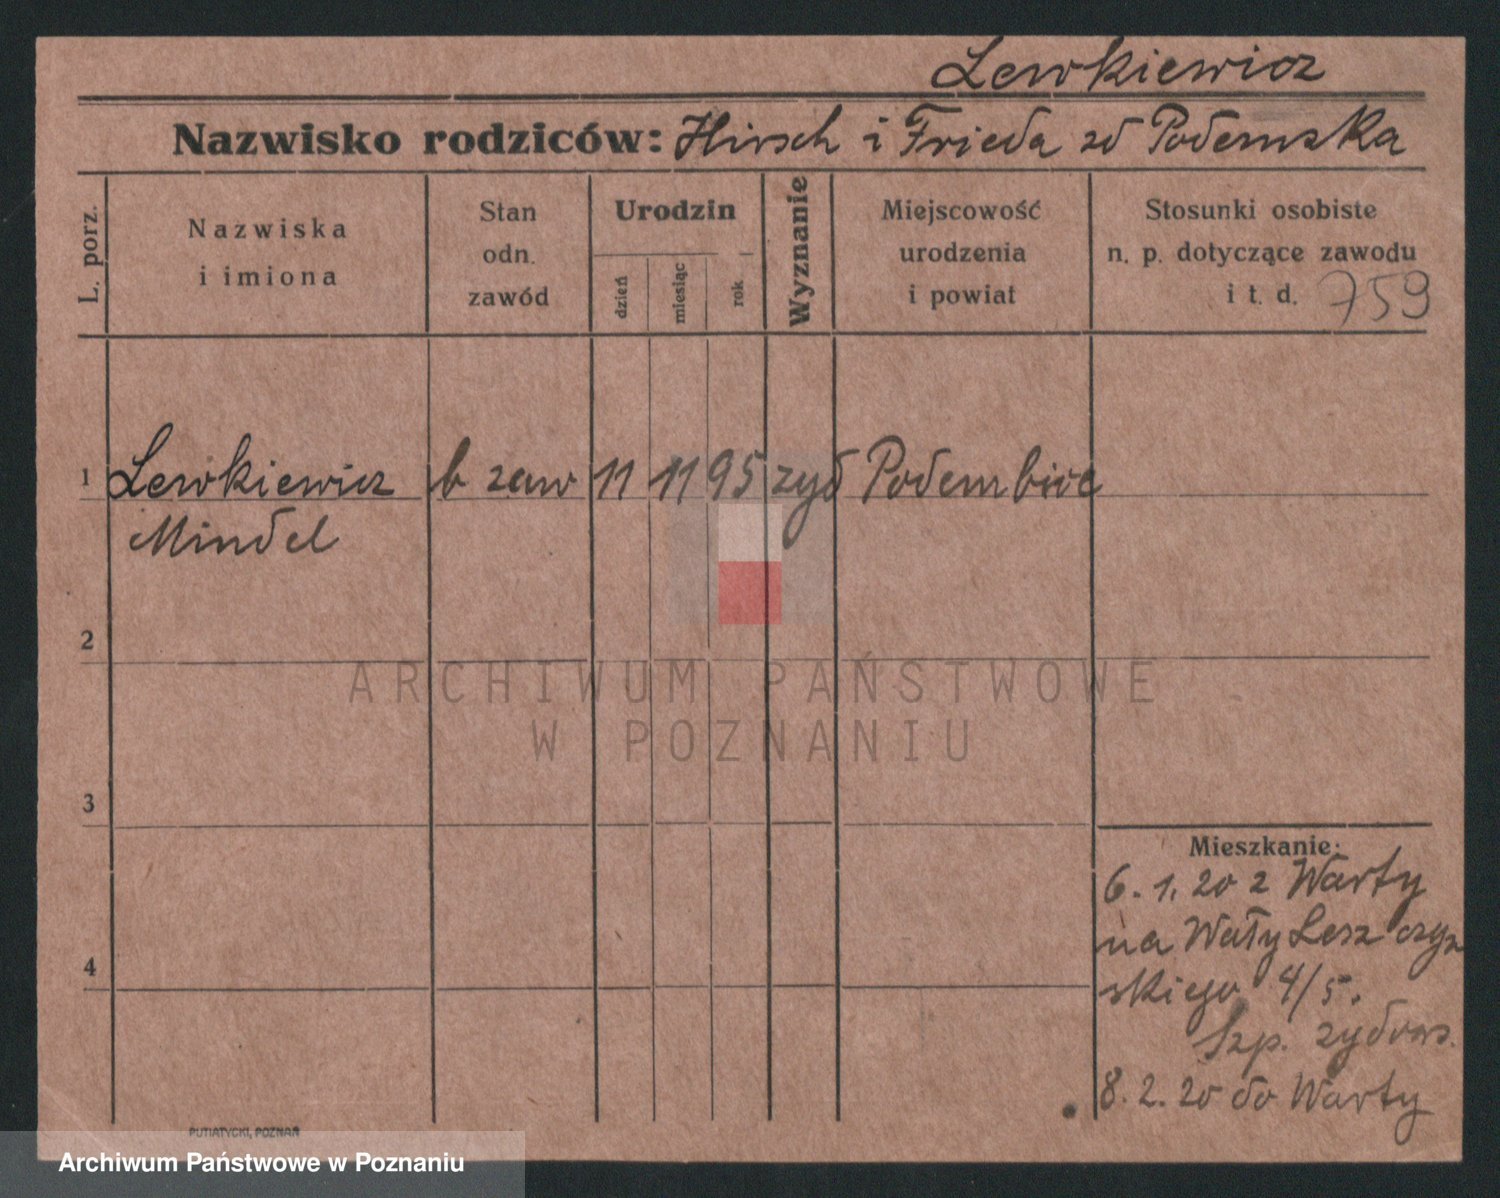 Lewkiewicz
Nazwisko rodziców: Hirsch i Frieda zd Podemska
L. porz.
Nazwiska
i imiona
Stan
odn.
zawód
Urodzin
dzień
miesiąc
rok
Wyznanie
Miejscowość
urodzenia
i powiat
Stosunki osobiste
n. p. dotyczące zawodu
i t. d. 759
1 Lewkiewicz b zaw 11 11 95 zyd Podembice
Mindel
2
3
4
Mieszkanie:
6.1.20 z Warty
na Wały Leszczyn
skiego 4/5.
Szp. zydows.
8.2.20 do Warty
PUTIATYCKI, POZNAŃ
ARCHIWUM PAŃSTWOWE
W POZNANIU
Archiwum Państwowe w Poznaniu